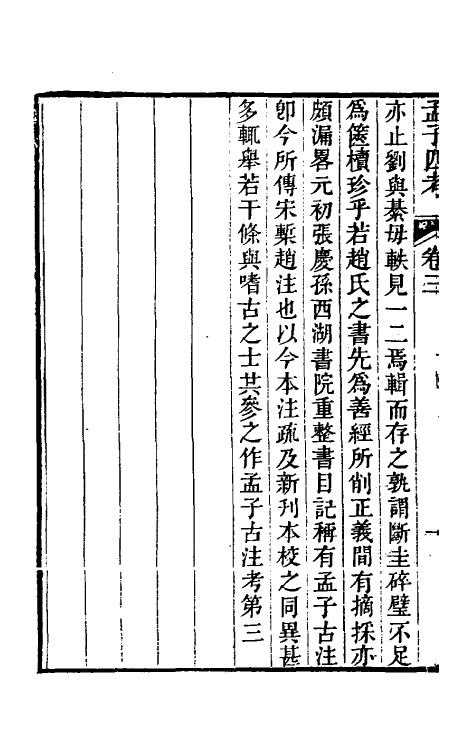 孟子四考
卷三
亦止劉與綦毋軼見一二焉輯而存之孰謂斷圭碎璧不足
爲篋櫝珍乎若趙氏之書先爲善經所削正義間有摘採亦
頗漏畧元初張慶孫西湖書院重整書目記稱有孟子古注
卽今所傳宋槧趙注也以今本注疏及新刊本校之同異甚
多輒舉若干條與嗜古之士共參之作孟子古注考第三